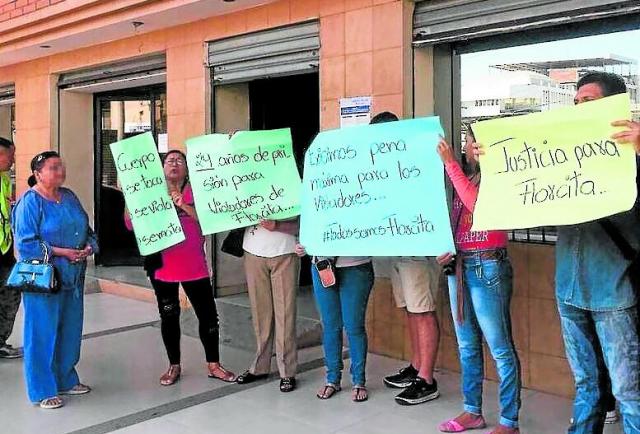 Cuerpo
se toca
se viola
se mata
34 años de pri
sión para
Violadores de
Florcita...
Exijimos pena
máxima para los
Violadores...
#TodosSomos-Florcita
Justicia para
Florcita...
ZAPER